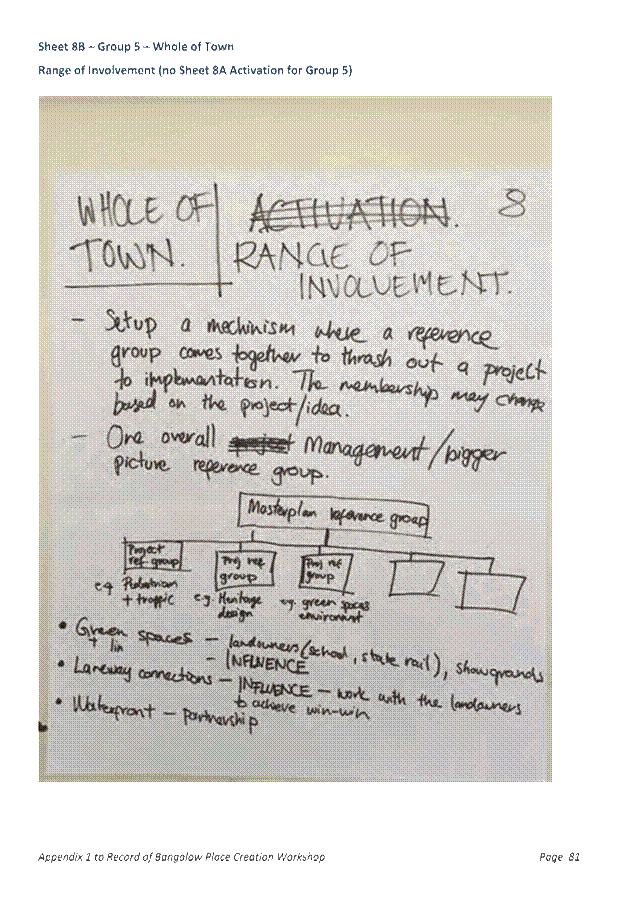 Sheet 8B – Group 5 – Whole of Town
Range of Involvement (no Sheet 8A Activation for Group 5)
WHOLE OF ACTIVATION. 8
TOWN. RANGE OF
INVOLVEMENT.
- Setup a mechinism where a reference
group comes together to thrash out a project
to implementation. The membership may change
based on the project/idea.
- One overall project Management/bigger
picture reference group.
Masterplan reference group
Project Proj ref Proj ref
ref group group group
e.g Pedestrian e.g. Heritage eg. green spaces
+ traffic design environment
• Green spaces – landowners (school, state rail), showgrounds
+ lin – INFLUENCE
• Laneway connections – INFLUENCE – work with the landowners
to achieve win-win
• Waterfront – partnership
Appendix 1 to Record of Bangalow Place Creation Workshop Page 81